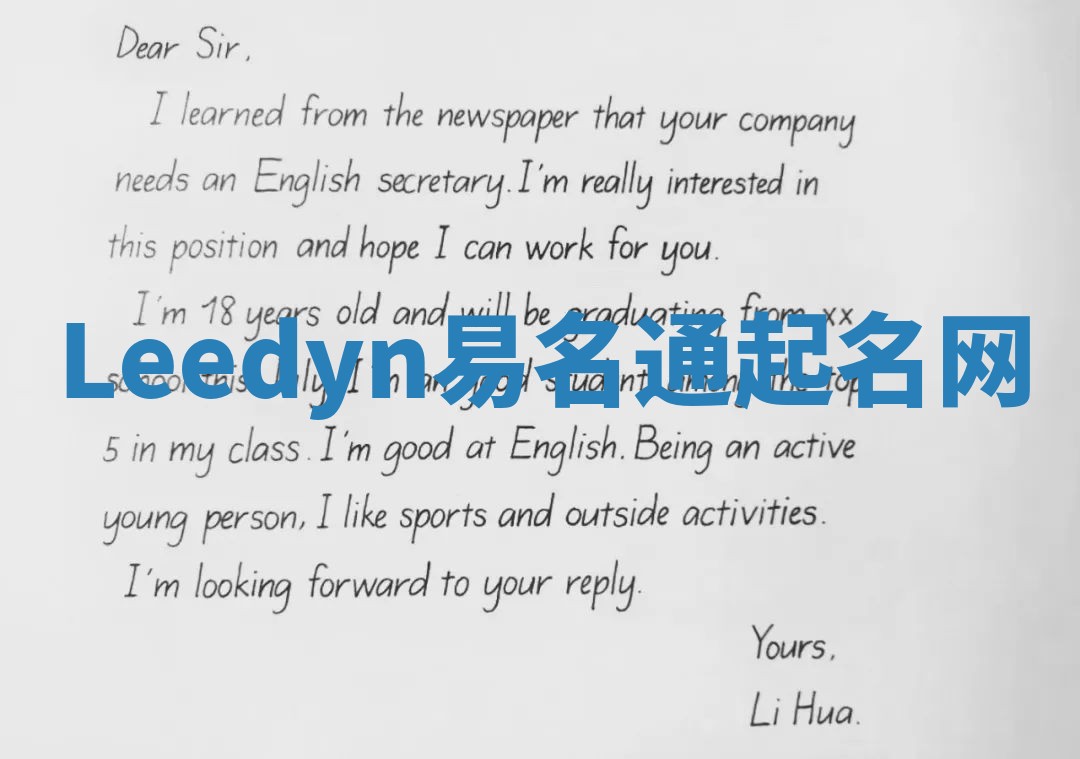 Dear Sir,
I learned from the newspaper that your company
needs an English secretary. I'm really interested in
this position and hope I can work for you.
I'm 18 years old and will be graduating from xx
Leedyn易名通起名网
school this July. I'm an good student among the top
5 in my class. I'm good at English. Being an active
young person, I like sports and outside activities.
I'm looking forward to your reply.
Yours,
Li Hua.